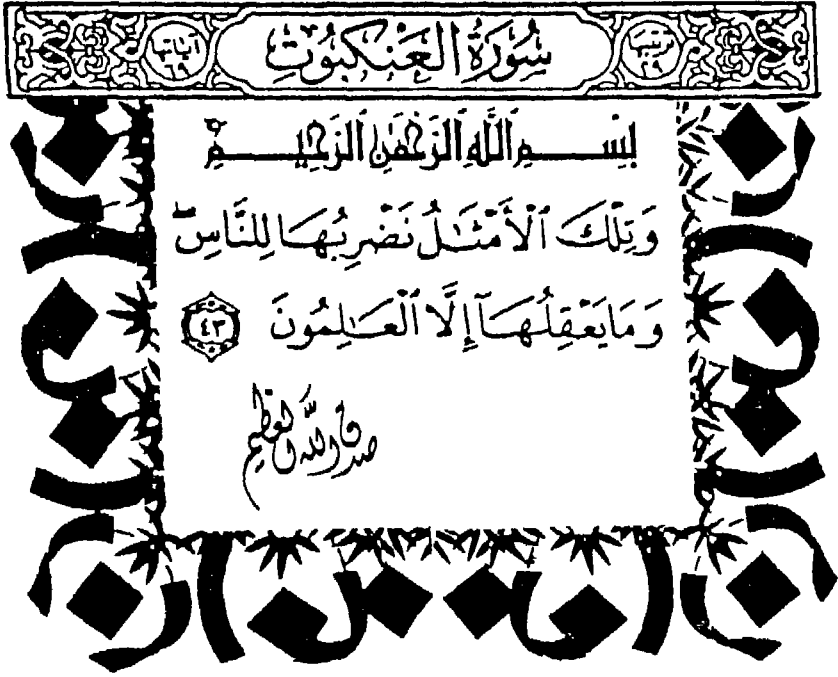 ترتيبها ٢٩ سُورَةُ العَنْكَبُوتِ آياتها ٦٩
بِسْمِ ٱللَّهِ ٱلرَّحْمَٰنِ ٱلرَّحِيمِ
وَتِلْكَ ٱلْأَمْثَٰلُ نَضْرِبُهَا لِلنَّاسِ ۖ
وَمَا يَعْقِلُهَآ إِلَّا ٱلْعَٰلِمُونَ ٤٣
صدق الله العظيم